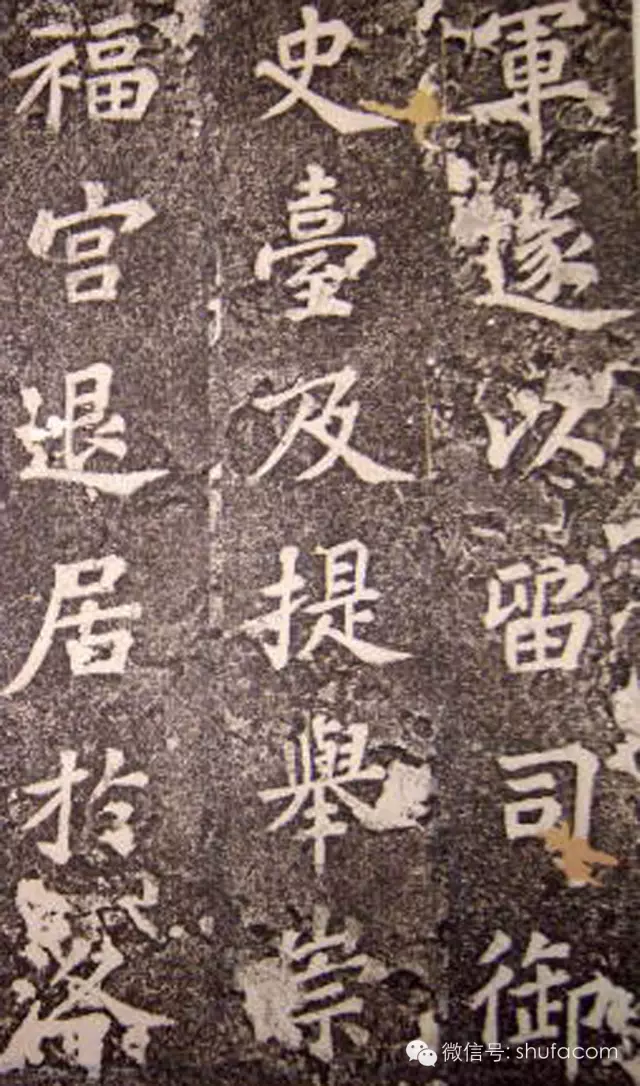 軍遂以留司御
史臺及提舉崇
福宮退居於洛
微信号: shufacom